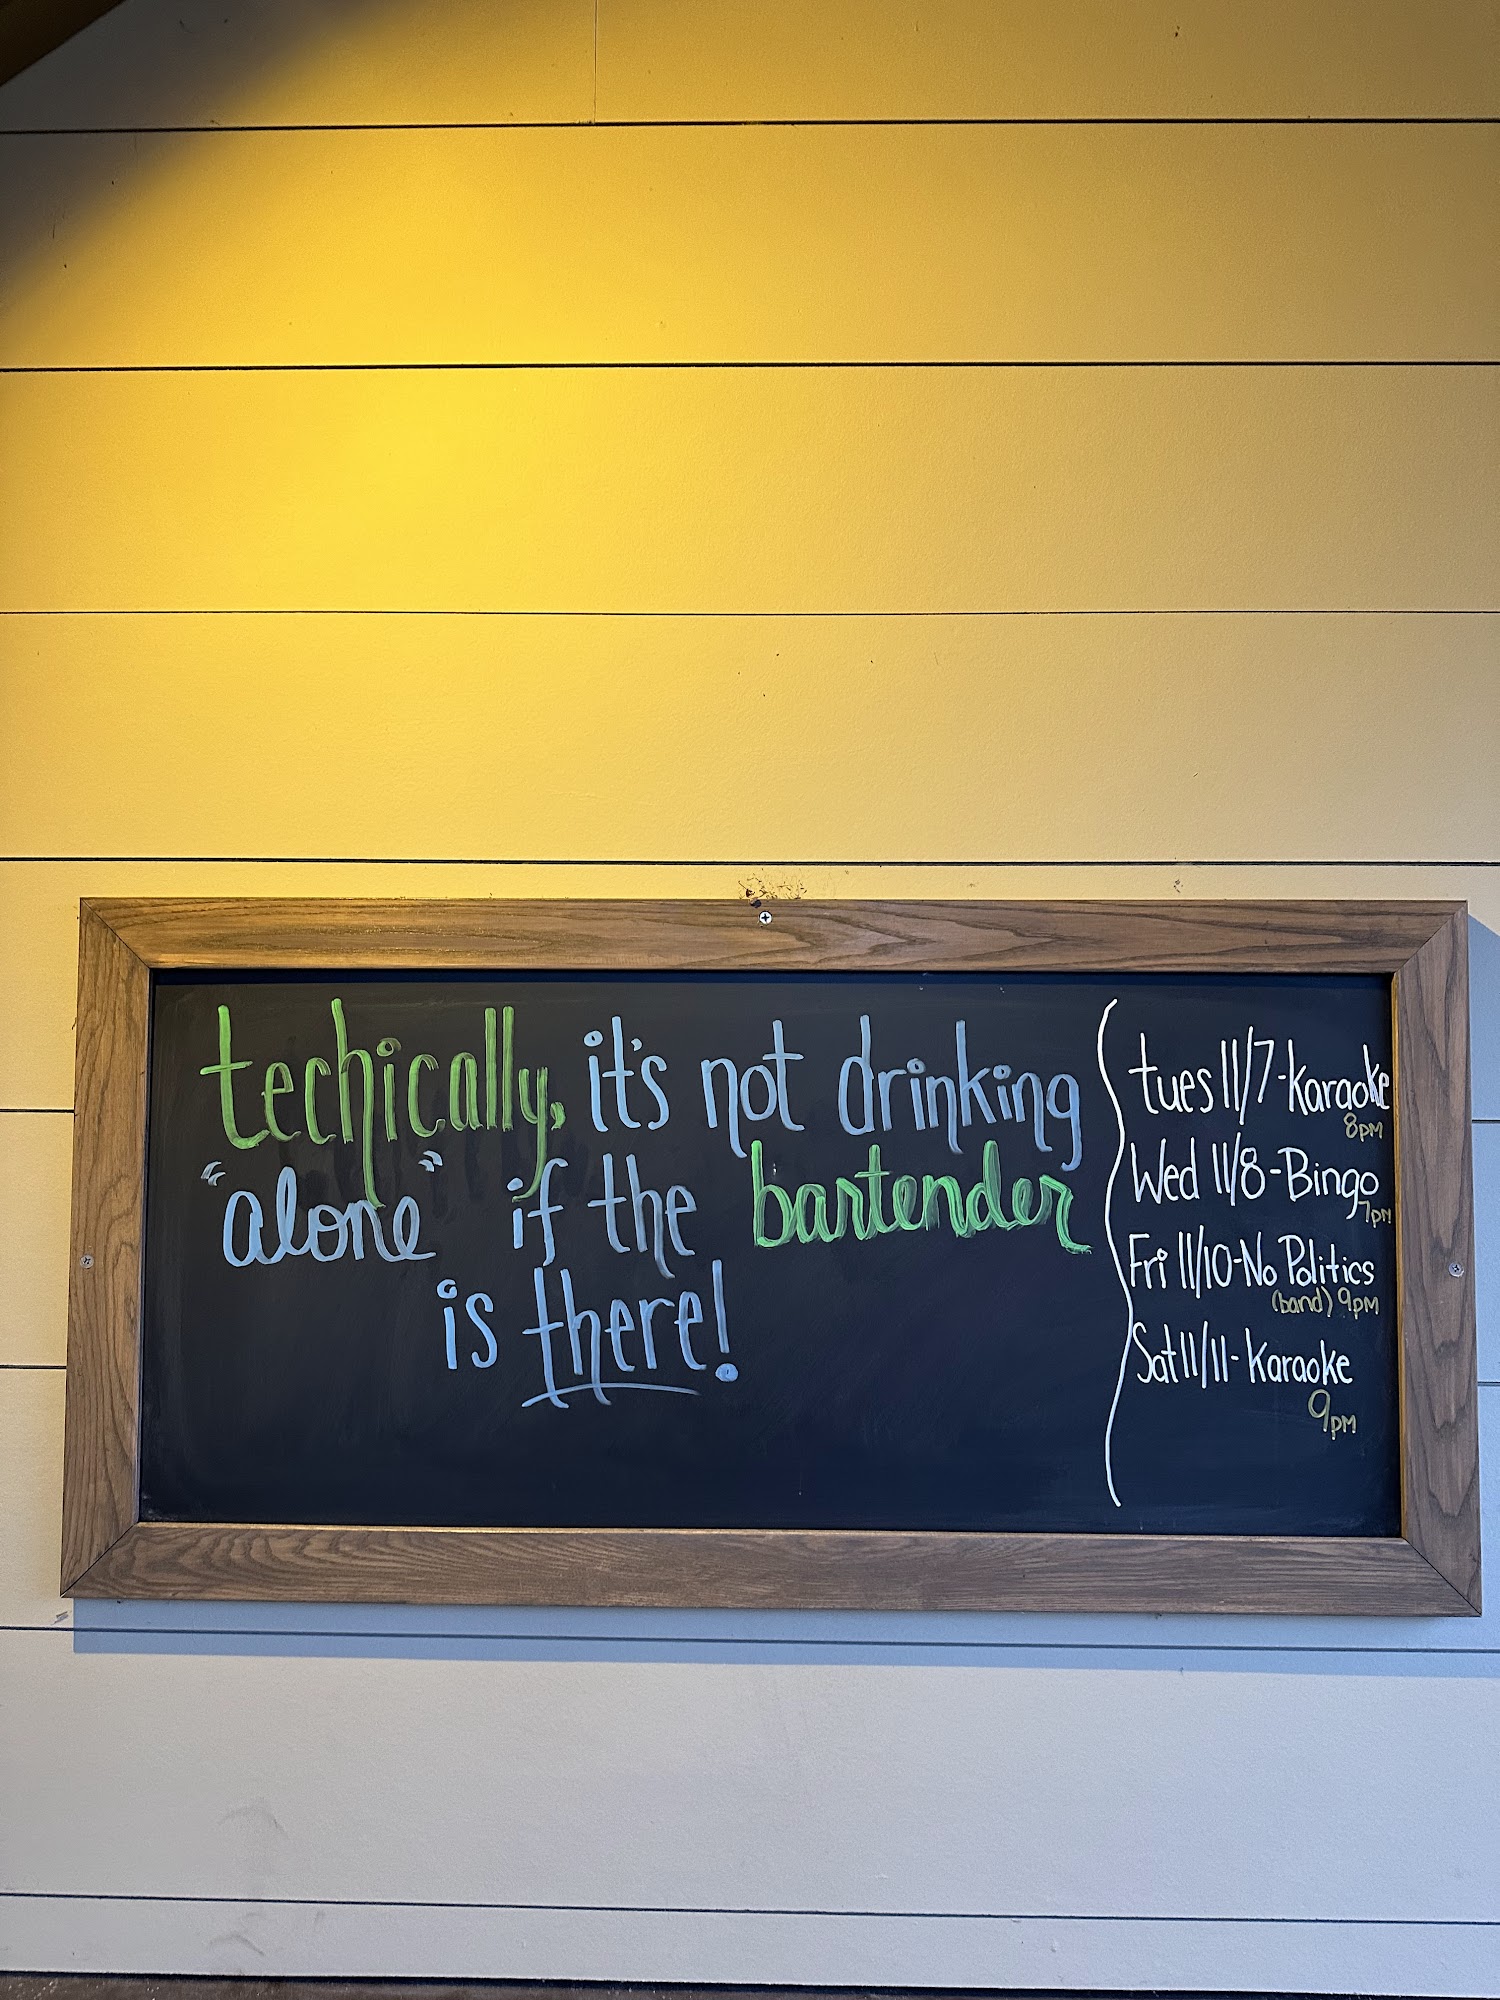 techically, it's not drinking
"alone" if the bartender
is there!
tues 11/7-Karaoke
8pm
Wed 11/8-Bingo
7pm
Fri 11/10-No Politics
(band) 9pm
Sat 11/11-Karaoke
9pm